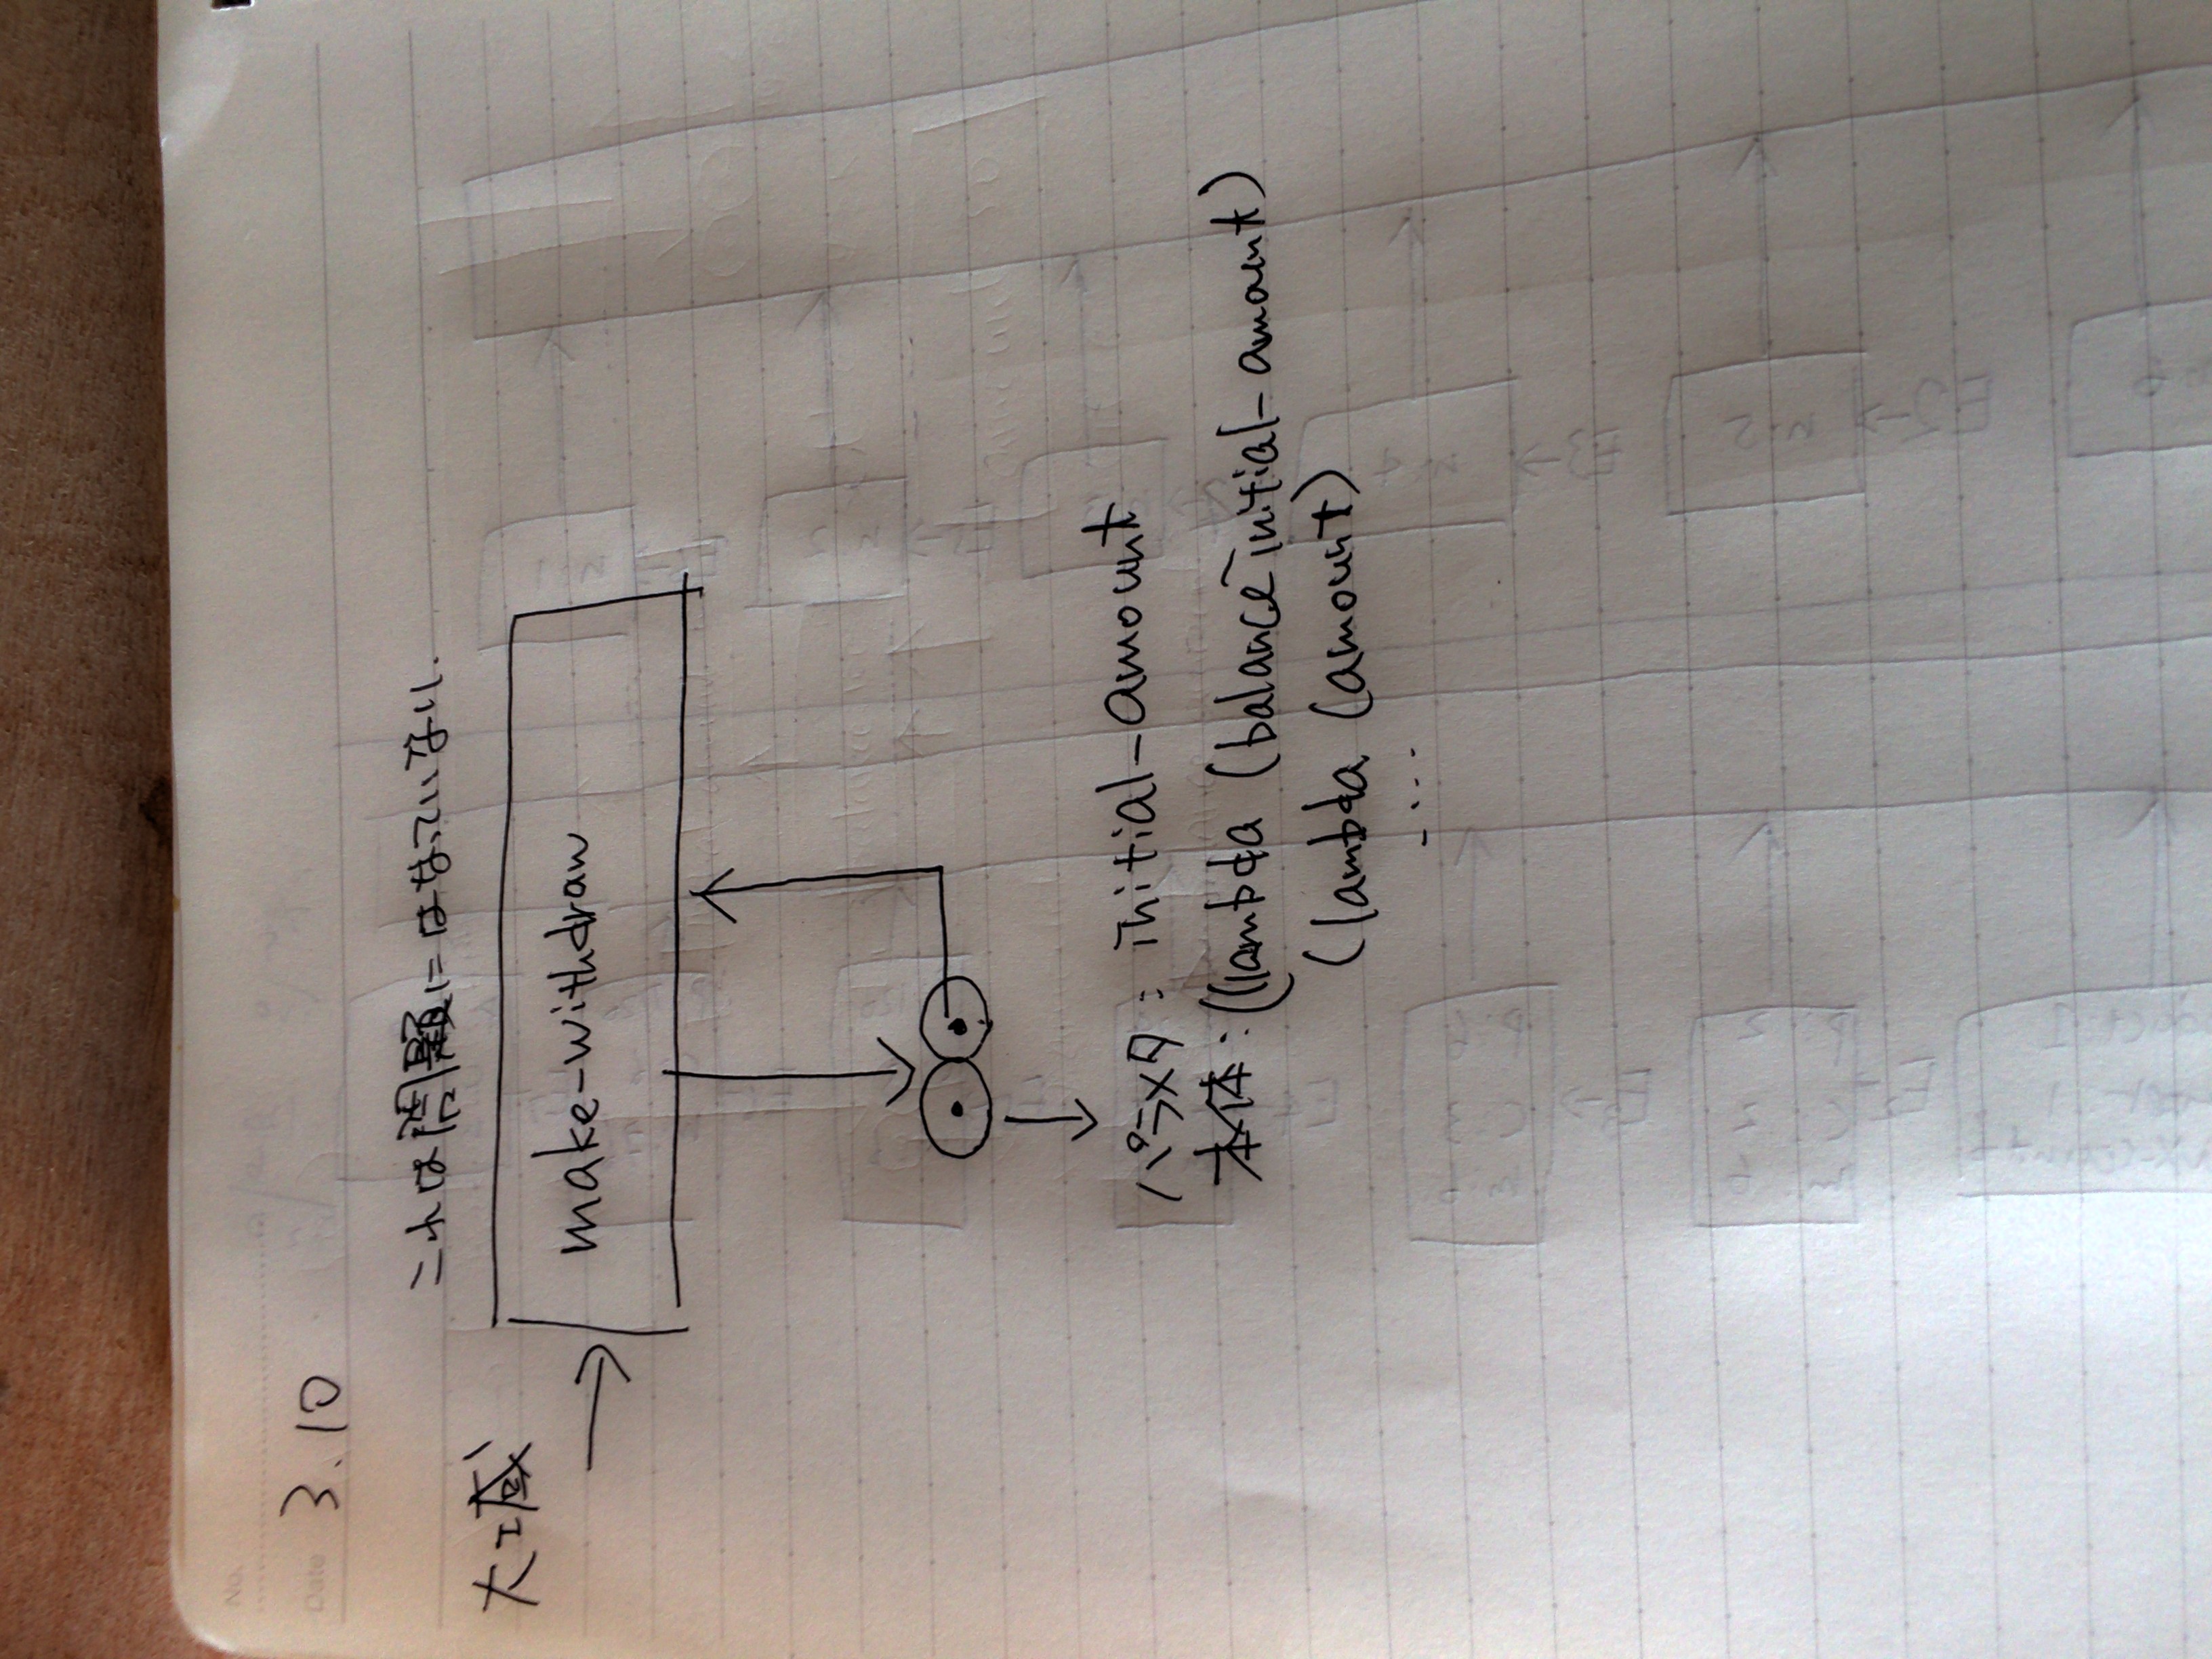 No.
Date 3.10
これは問題にはなっていない.
大域
make-withdraw
パラメタ: initial-amount
本体: ((lambda (balance initial-amount)
(lambda (amount)
....